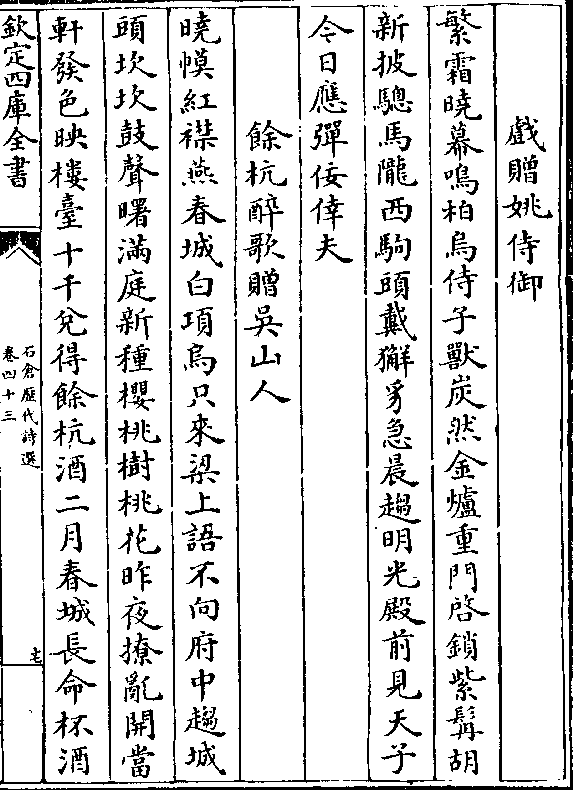 戲贈姚侍御
繁霜曉幕鳴柏烏侍子獸炭然金爐重門啓鎖紫髯胡
新披驄馬隴西駒頭戴獬豸急晨趨明光殿前見天子
今日應彈佞倖夫
餘杭醉歌贈吳山人
曉幙紅襟燕春城白項烏只來梁上語不向府中趨城
頭坎坎鼓聲曙滿庭新種櫻桃樹桃花昨夜撩亂開當
軒發色映樓臺十千兌得餘杭酒二月春城長命杯酒
欽定四庫全書
石倉歷代詩選
卷四十三